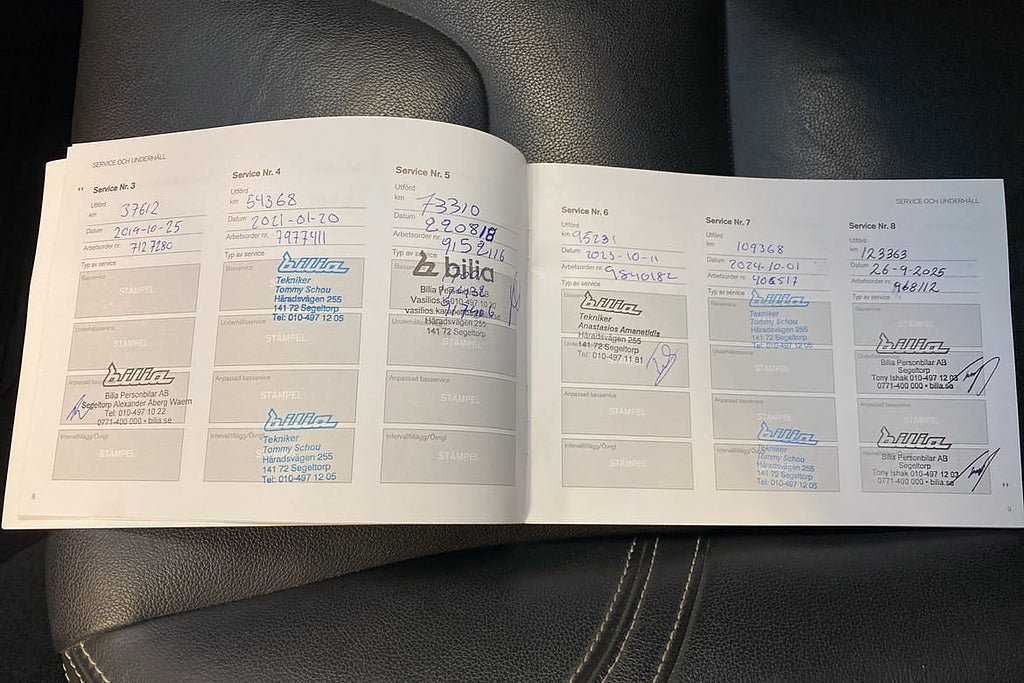 SERVICE OCH UNDERHÅLL
Service Nr. 3
Utförd
km 37612
Datum 2019-10-25
Arbetsorder nr. 7127280
Typ av service
STÄMPEL
Underhållsservice
Anpassad basservice
bilia
Bilia Personbilar AB
Segeltorp Alexander Åberg Waern
Tel: 010-497 10 22
0771-400 000 • bilia.se
Intervalltillägg/Övrigt
STÄMPEL
8
Service Nr. 4
Utförd
km 54368
Datum 2021-01-20
Arbetsorder nr. 7977411
Typ av service
Basservice
bilia
Tekniker
Tommy Schou
Häradsvägen 255
141 72 Segeltorp
Tel: 010-497 12 05
Underhållsservice
STÄMPEL
Anpassad basservice
STÄMPEL
bilia
Tekniker
Tommy Schou
Häradsvägen 255
141 72 Segeltorp
Tel: 010-497 12 05
Service Nr. 5
Utförd
km 73310
Datum 220818
Arbetsorder nr. 9152116
Typ av service
bilia
Häradsvägen 255
141 72 Segeltorp
STÄMPEL
Anpassad basservice
STÄMPEL
Intervalltillägg/Övrigt
STÄMPEL
SERVICE OCH UNDERHÅLL
Service Nr. 6
Utförd
km 95231
Datum 2023-10-11
Arbetsorder nr. 9840182
Typ av service
bilia
Tekniker
Anastasios Amanetidis
Häradsvägen 255
141 72 Segeltorp
Tel: 010-497 11 81
Anpassad basservice
STÄMPEL
Intervalltillägg/Övrigt
STÄMPEL
Service Nr. 7
Utförd
km 109368
Datum 2024-10-01
Arbetsorder nr. 406517
Typ av service
bilia
Tekniker
Tommy Schou
Häradsvägen 255
141 72 Segeltorp
Tel: 010-497 12 05
Underhållsservice
STÄMPEL
Anpassad basservice
STÄMPEL
bilia
Tekniker
Tommy Schou
Häradsvägen 255
141 72 Segeltorp
Tel: 010-497 12 05
Service Nr. 8
Utförd
km 123363
Datum 26-9-2025
Arbetsorder nr. 968112
Typ av service
Basservice
STÄMPEL
bilia
Bilia Personbilar AB
Segeltorp
Tony Ishak 010-497 12 03
0771-400 000 • bilia.se
Anpassad basservice
STÄMPEL
bilia
Bilia Personbilar AB
Segeltorp
Tony Ishak 010-497 12 03
0771-400 000 • bilia.se
9